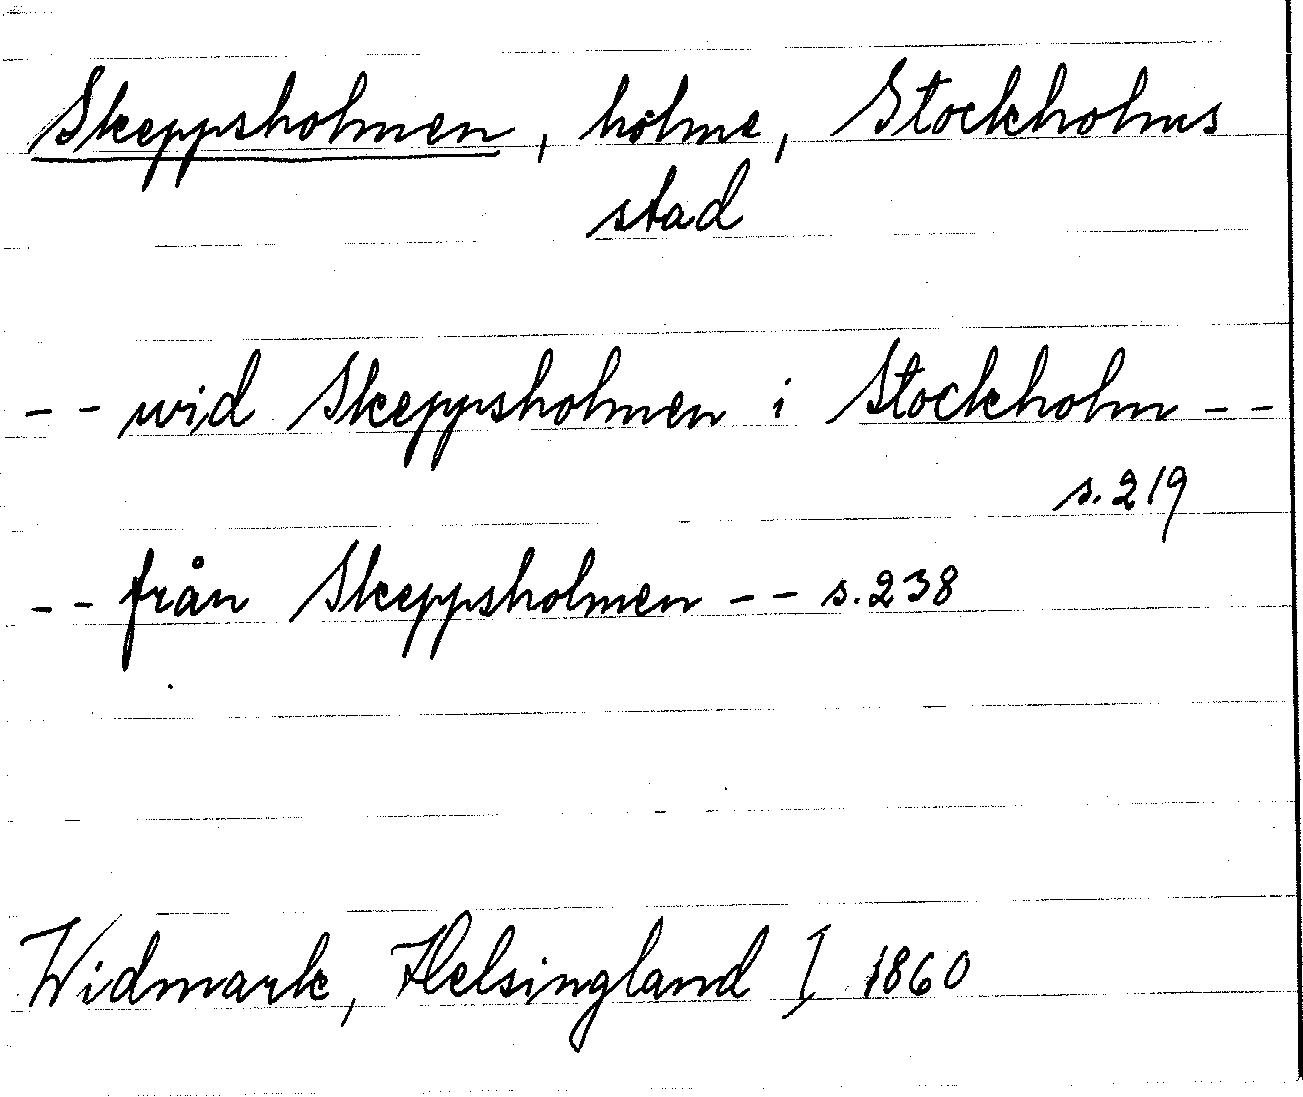 Skeppsholmen, holme, Stockholms
stad
-- wid Skeppsholmen i Stockholm --
s. 219
-- från Skeppsholmen -- s. 238
Widmark, Helsingland I 1860